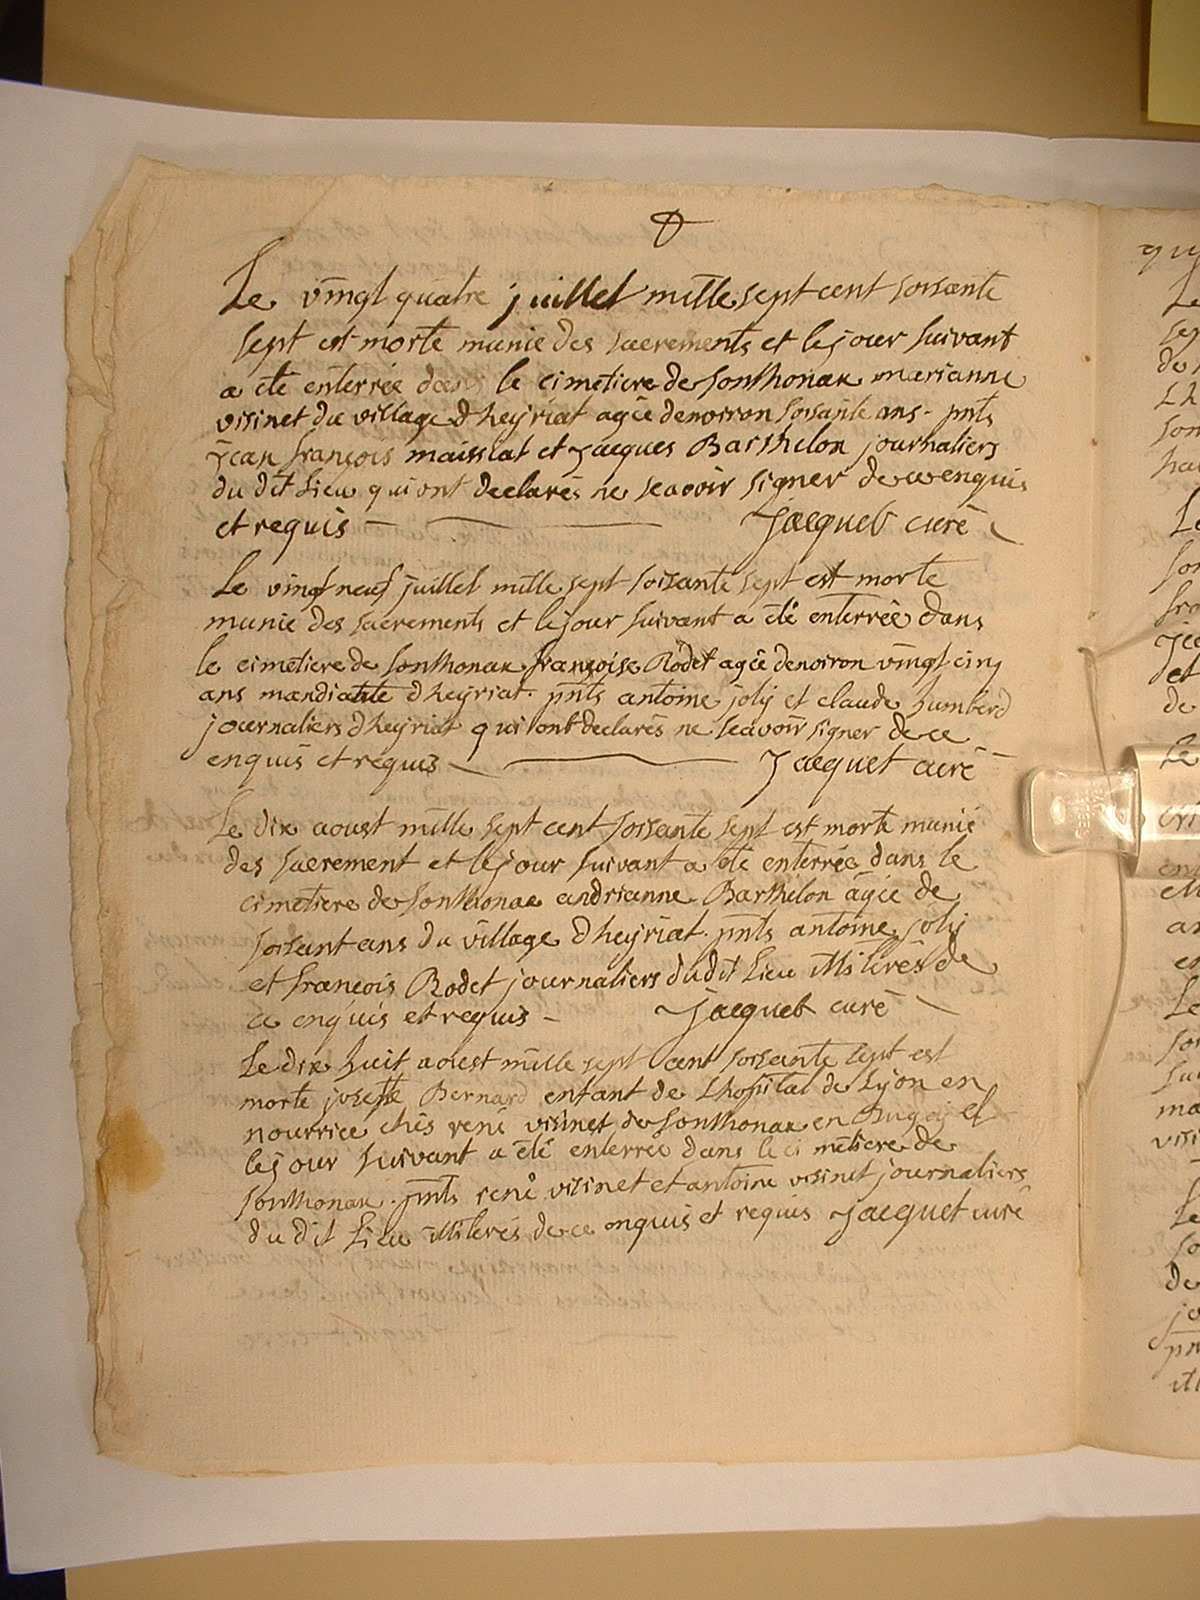 Le vingt quatre juillet mille sept cent soisante
sept est morte munie des sacrements et le jour suivant
a été enterrée dans le cimetiere de sonthonax marianne
visinet du village d'heyriat agée denviron soisante ans. pnts
jean françois maissiat et jacques Barthelon journaliers
du dit lieu qui ont declarés ne scavoir signer de ce enquis
et requis Jacquet curé
Le vingt neuf juillet mille sept soisante sept est morte
munie des sacrements et le jour suivant a été enterrée dans
le cimetiere de sonthonax françoise Rodet agée denviron vingt cinq
ans mandiante d'heyriat. pnts antoine joly et claude humberd
journaliers d'heyriat qui ont declarés ne scavoir signer de ce
enquis et requis Jacquet curé
Le dix aoust mille sept cent soisante sept est morte munie
des sacrement et le jour suivant a été enterrée dans le
cimetiere de sonthonax andrianne Barthelon agée de
soisant ans du village d'heyriat. pnts antoine joly
et françois Rodet journaliers du dit lieu illiterés de
ce enquis et requis Jacquet curé
Le dix huit aoust mille sept cent soisante sept est
morte josephte Bernard enfant de Lhopital de Lyon en
nourrice chés rené visinet de sonthonax en Bugey et
le jour suivant a été enterrée dans le ci metiere de
sonthonax. pnts rené visinet et antoine visinet journaliers
du dit lieu illiterés de ce enquis et requis Jacquet curé
qu
Le
sep
de
Lh
son
Le
son
fra
et
de
Le
en
an
en
Le
son
ma
visi
Le
so
de
jo
pn
ill